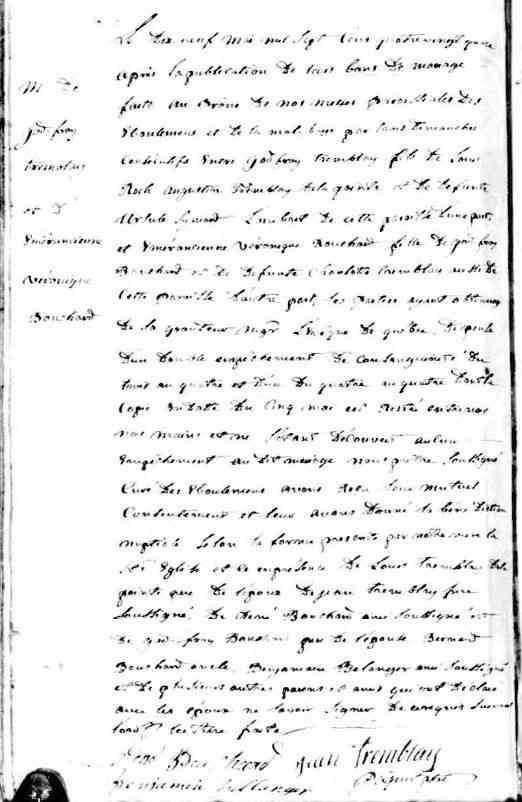 M. De
godfroy
tremblay
et d'
Emérancienne
véronique
Bouchard
Le dix neuf mai mil Sept Cens quatrevingt
après la publication De trois bans De mariage
faite au Prône De nos messes paroissiales Des
Eboulemens et De la malbaye par trois Dimanches
Consécutifs Entre godfroy tremblay fils De Louis
Roch augustin Tremblay et De Defunte
Ursule Simard De cette paroisse D'une part
et Emérancienne véronique Bouchard fille De godfroy
Bouchard et De Defunte Charlotte tremblay aussi De
Cette paroisse D'autre part, les parties ayant obtenu
De sa grandeur Mgr L'évêque De quebec Dispense
D'un Double empêchement De Consanguinité Du
trois au quatre et D'un Du quatre au quatre Dont la
Copie en Datte Du Cinq mai est restée entre
nos mains et ne S'étant Découvert aucun
Empêchement au Dit mariage nous prêtre Soussigné
Curé Des Eboulemens avons Reçu leur mutuel
Consentement et leur avons Donné la bénédiction
nuptiale Selon la forme prescrite par notre mère la
Ste Eglise et ce en présence De Louis tremblay
père De l'époux De jean tremblay
Soussigné De René Bouchard ami Soussigné
De godfroy Bouchard père De l'épouse Bernard
Bouchard oncle, Benjamin Belanger ami Soussigné
et De plusieurs autres parens et amis qui ont Déclaré
avec les époux ne Savoir Signer De ce enquis Suivant
lord. lecture faite
René Bouchard jean tremblay
Benjamin Bellanger ptre